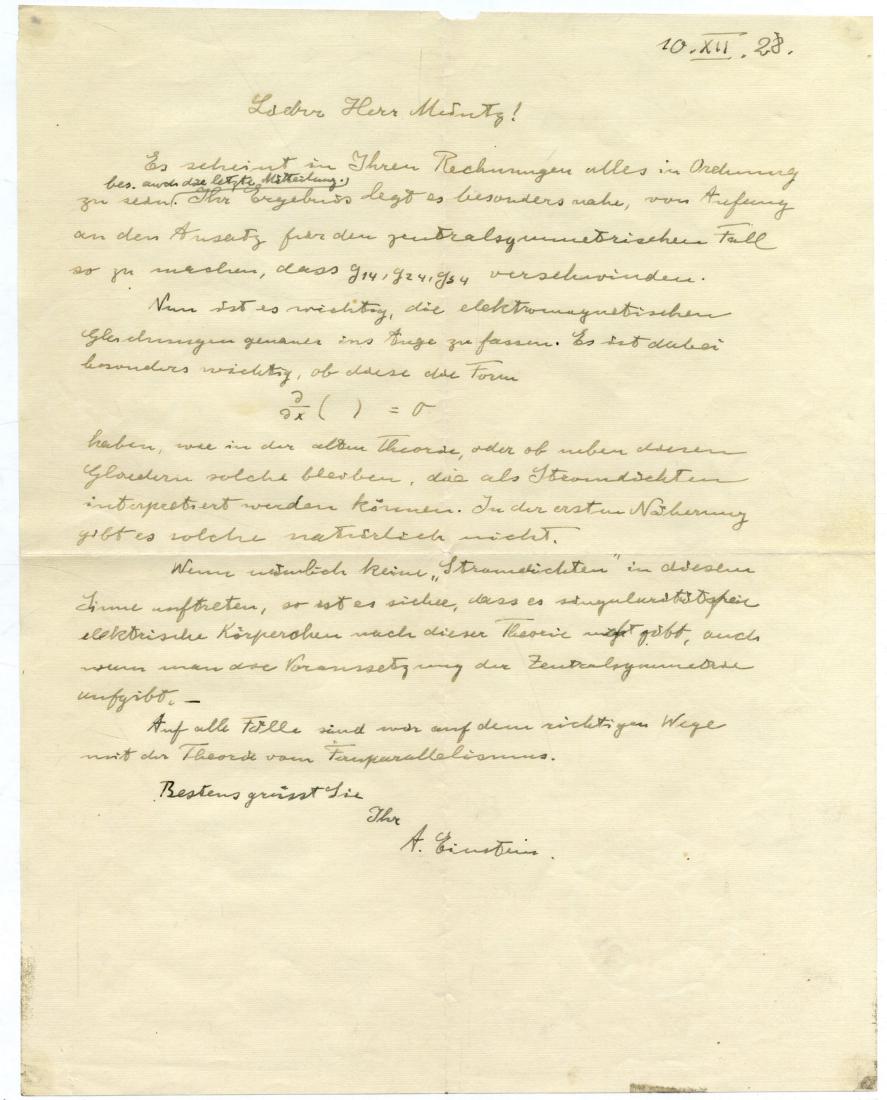 10. XII. 28.
Lieber Herr Müntz!
Es scheint in Ihren Rechnungen alles in Ordnung
bes. auch die letzte Mitteilung.)
zu sein. Ihr Ergebnis legt es besonders nahe, von Anfang
an den Ansatz für den zentralsymmetrischen Fall
so zu machen, dass g₁₄, g₂₄, g₃₄ verschwinden.
Nun ist es wichtig, die elektromagnetischen
Gleichungen genauer ins Auge zu fassen. Es ist dabei
besonders wichtig, ob diese die Form
∂/∂x ( ) = 0
haben, wie in der alten Theorie, oder ob neben diesen
Gliedern solche bleiben, die als Stromdichten
interpretiert werden können. In der ersten Näherung
gibt es solche natürlich nicht.
Wenn nämlich keine „Stromdichten" in diesem
Sinne auftreten, so ist es sicher, dass es singularitätsfreie
elektrische Körperchen nach dieser Theorie nicht gibt, auch
wenn man die Voraussetzung der Zentralsymmetrie
aufgibt. —
Auf alle Fälle sind wir auf dem richtigen Wege
mit der Theorie vom Fernparallelismus.
Bestens grüsst Sie
Ihr
A. Einstein.